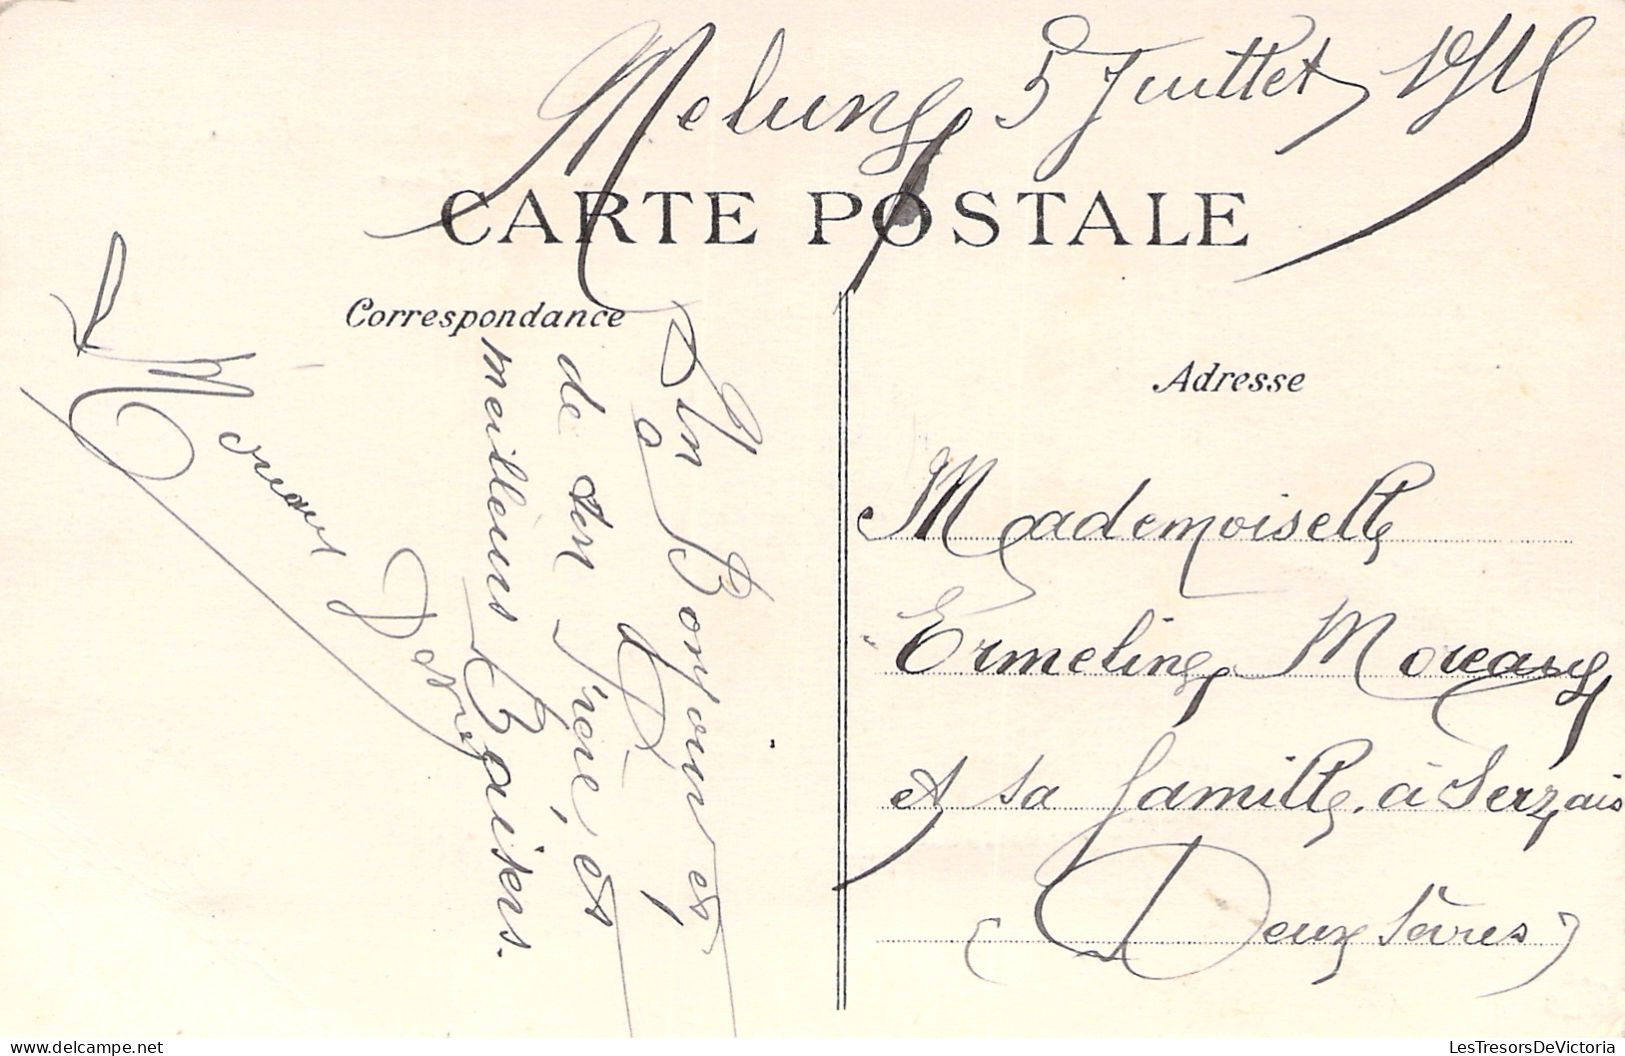 Melun 5 Juillet 1915
CARTE POSTALE
Correspondance
Adresse
Un Bonjour et
à
de ton frère, et
meilleurs Baisers.
Moreau
Mademoiselle
Ermeline Moreau
et sa famille. à Serzais
(Deux Sèvres)
LesTresorsDeVictoria